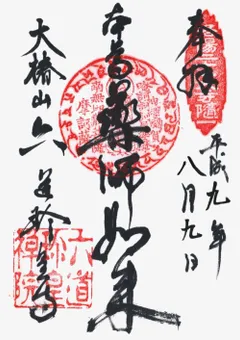 奉拝
平成九年
八月九日
本尊薬師如来
大椿山六道珍皇寺
六道
珍皇
禅院